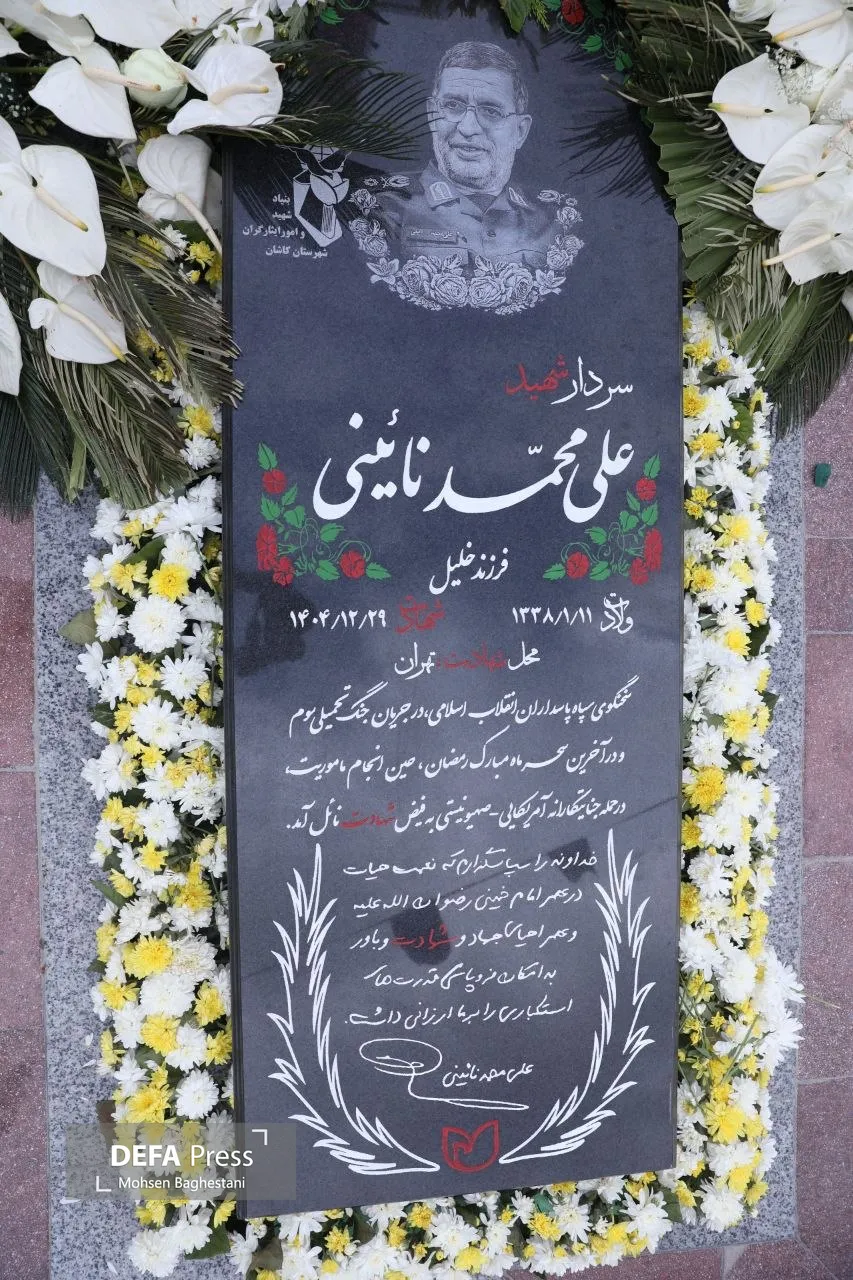 بنیاد
شهید
و امور ایثارگران
شهرستان کاشان
سردار شهید
علی محمّد نائینی
فرزند خلیل
ولادت ۱۳۳۸/۱/۱۱ شهادت ۱۴۰۴/۱۲/۲۹
محل شهادت: تهران
سخنگوی سپاه پاسداران انقلاب اسلامی، در جریان جنگ تحمیلی سوم
و در آخرین سحر ماه مبارک رمضان، حین انجام ماموریت،
در حمله جنایتکارانه آمریکایی-صهیونیستی به فیض شهادت نائل آمد.
خداوند را سپاسگذارم که نعمت حیات
در عصر امام خمینی رضوان الله علیه
و عصر احیای جهاد و شهادت و باور
به امکان فروپاشی قدرت های
استکباری را بر ما ارزانی داشت.
علی محمد نائینی
DEFA Press
Mohsen Baghestani